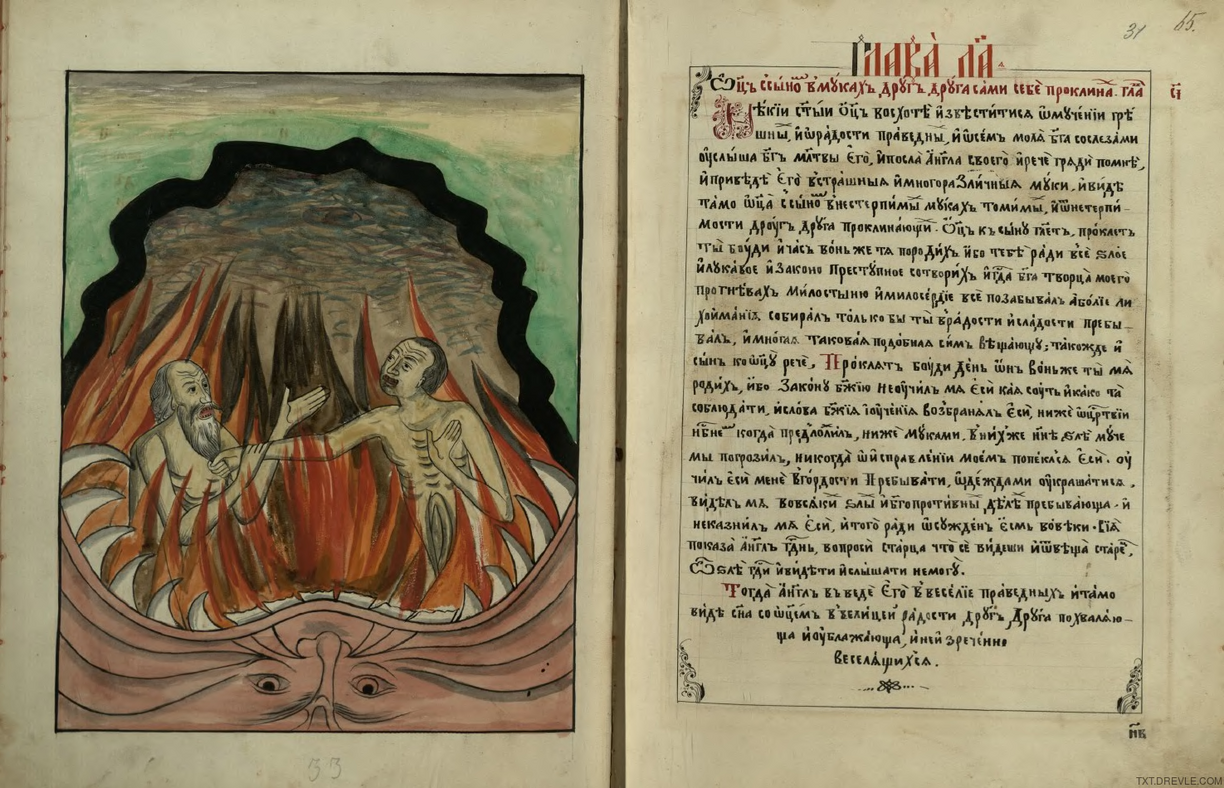 31
65.
ГЛАВА́ ЛА҃.
Ѿц҃ъ с̾ сы́номъ в̾ му́кахъ дру́гъ дру́га са́ми себѐ проклина́. гла҃
Нѣ́кїи ст҃ы́и ѻ҆ц҃ъ восхотѣ̀ и҆звѣсти́тисѧ ѡ҆ муче́нїи грѣ̀
шны̾, и҆ ѡ҆ ра́дости пра́ведны̾, и҆ ѡ҆ се́мъ молѧ̀ бг҃а со слеза́ми
ѹ҆слы́ша бг҃ъ мл҃твы є҆гѡ̀, и҆ посла̀ а҆́гг҃ла своего̀ и҆ речѐ грѧдѝ по мнѣ̀,
и҆ приве́де є҆го̀ в̾ стра́шныѧ и҆ многоразли́чныѧ му́ки, и҆ ви́дѣ
та́мо ѻ҆ц҃а̀ с̾ сы́номъ в̾ нестерпи́мы̾ му́кахъ томи́мы̾, и҆ ѿ нетерпи́-
мости дро́угъ дру́га проклина́ющи. Ѻ҆ц҃ъ къ сы́ну гл҃етъ, про́клѧтъ
ты̀ бо́уди и҆ ча́съ во́ньже тѧ породи́хъ и҆́бо тебѐ ра́ди всѐ ѕло́е
и҆ лука́вое и҆ законо престу́пное сотвори́хъ и҆ гдⷭ҇а бг҃а творца̀ моего̀
прогнѣ́вахъ ми́лостыню и҆ милосе́рдїе всѐ позабыва́лъ а҆ бо́лїе ли
хои҆ма́нїѧ собира́лъ то́лько бы ты̀ в̾ ра́дости и҆ сла́дости пребы-
ва́лъ, и҆ мно́гаѧ такова́ѧ подо́бнаѧ си́мъ вѣща́ющу; та́кожде и҆
сы́нъ ко ѻ҆ц҃у̀ речѐ, Про́клѧтъ бо́уди де́нь ѻ҆́нъ во́ньже ты̀ мѧ̀
роди́хъ, и҆́бо зако́ну бж҃їю не ѹ҆чи́лъ мѧ є҆сѝ ка́ѧ со́уть и҆ ка́ко та
соблюда́ти, и҆ сло́ва бж҃їѧ и҆ ѹ҆че́нїѧ возбранѧ́лъ є҆сѝ, нижѐ ѡ҆ црⷭ҇твїи
нбⷭ҇нѣмъ когда̀ предложи́лъ, нижѐ му́ками, в̾ ни́хже нн҃ѣ ѕлѣ̀ му́че
мы̀ погрози́лъ, никогда̀ ѡ҆ и҆справле́нїи мое́мъ попе́клсѧ є҆сѝ. ѹ҆
чи́лъ є҆сѝ менѐ в̾ го́рдости пребыва́ти, ѡ҆де́ждами ѹ҆краша́тисѧ,
ви́дѣлъ мѧ̀ во всѧ́ки̾ ѕлы̾ и҆ бг҃опроти́вны̾ дѣ́лѣ̾ пребыва́юща. и҆
не казни́лъ мѧ̀ є҆сѝ, и҆ того̀ ра́ди ѡ҆сужде́нъ є҆́смь во вѣ́ки. Сїѧ̀
показа̀ а҆́гг҃лъ гдⷭ҇нь, вопросѝ ста́рца что̀ сѐ ви́деши и҆ ѿвѣща̀ ста́рецъ,
Ѿ ѕлѣ̀ гдⷭ҇и и҆ ви́дѣти и҆ слы́шати не могу̀.
Тогда̀ а҆́гг҃лъ в̾ведѐ є҆го̀ в̾ весе́лїе пра́ведныхъ и҆ та́мо
ви́дѣ сн҃а со ѻ҆ц҃е́мъ в̾ вели́цей ра́дости дру́гъ дру́га похвалѧ́ю-
ща и҆ ѹ҆блажа́юща, и҆ неи҆зрече́нно
веселѧ́щихсѧ.
33
TXT.DREVLE.COM